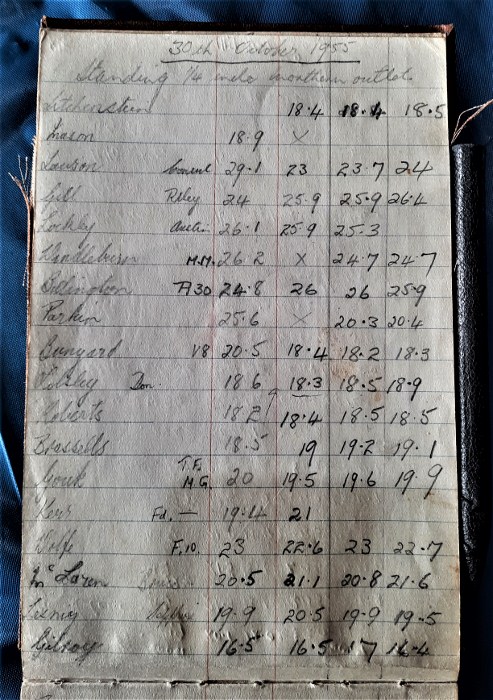 30th October 1955
Standing 1/4 mile
Litchenstein 18.4 18.4 18.5
Mason 18.9 X
Lawson 29.1 23 23.7 24
Gill Riley 24 25.9 25.9 26.4
Lockley Austin 26.1 25.9 25.3
M.M. 26.2 X 24.7 24.7
A30 24.8 26 26 25.9
Parkin 25.6 X 20.3 20.4
Bunyard V8 20.5 18.4 18.2 18.3
Don. 18 6 18.3 18.5 18.9
Roberts 18 2 18.4 18.5 18.5
18.5 19 19.2 19.1
T.F.
M.G. 20 19.5 19.6 19.9
Keys Fd. — 19.4 21
Wolfe F.10. 23 22.6 23 22.7
McLaren 20.5 21.1 20.8 21.6
19.9 20.5 19.9 19.5
Gilroy 16.5 16.5 17 16.4